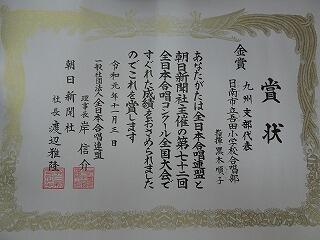 賞状
金賞
九州支部代表
日南市立吾田小学校合唱部
指揮 黒木順子
あなたがたは全日本合唱連盟と
朝日新聞社主催の第七十二回
全日本合唱コンクール全国大会で
すぐれた成績をおさめられました
のでこれを賞します
令和元年十一月三日
一般社団法人全日本合唱連盟
理事長 岸 信介
朝日新聞社
社長 渡辺雅隆